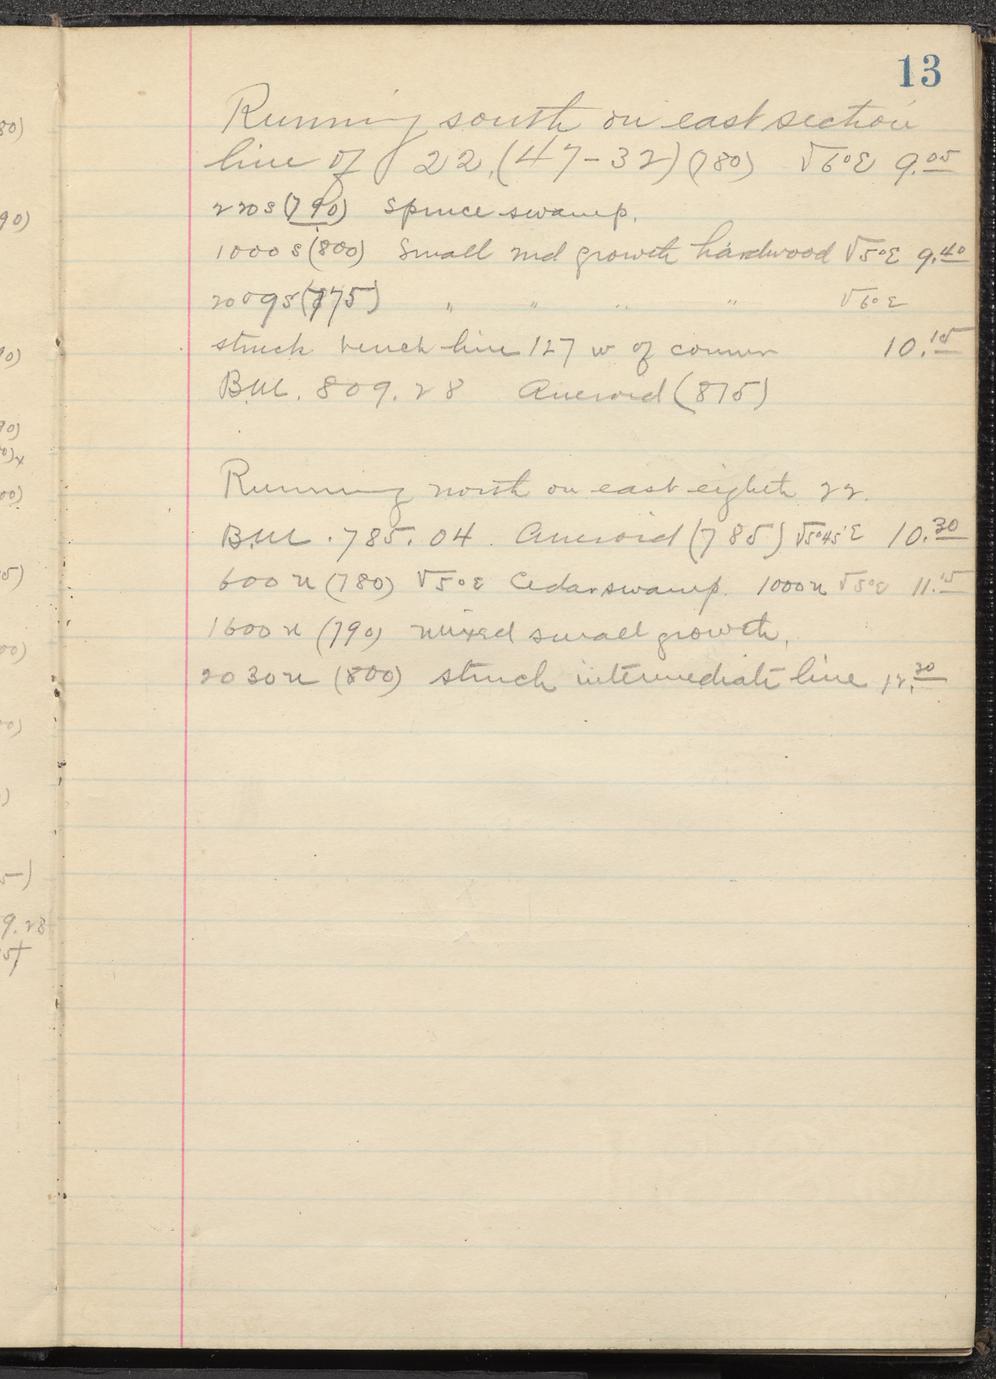 13
Running south on east section
line of 22, (47-32) (780) V6°E 9.05
220 S (790) Spruce swamp.
1000 S (800) Small 2nd growth hardwood V5°E 9.40
2009 S (875) " " " " V6°E
struck bench line 127 w of corner 10.15
B.M. 809.28 Aneroid (875)
Running north on east eighth 22.
B.M. 785.04. Aneroid (785) V5°45'E 10.30
600 N (780) V5°E Cedar swamp. 1000 N V5°E 11.15
1600 N (790) mixed small growth.
2030 N (800) struck intermediate line 12.20
80)
90)
90)
00)
5)
00)
00)
)
5-)
9.28